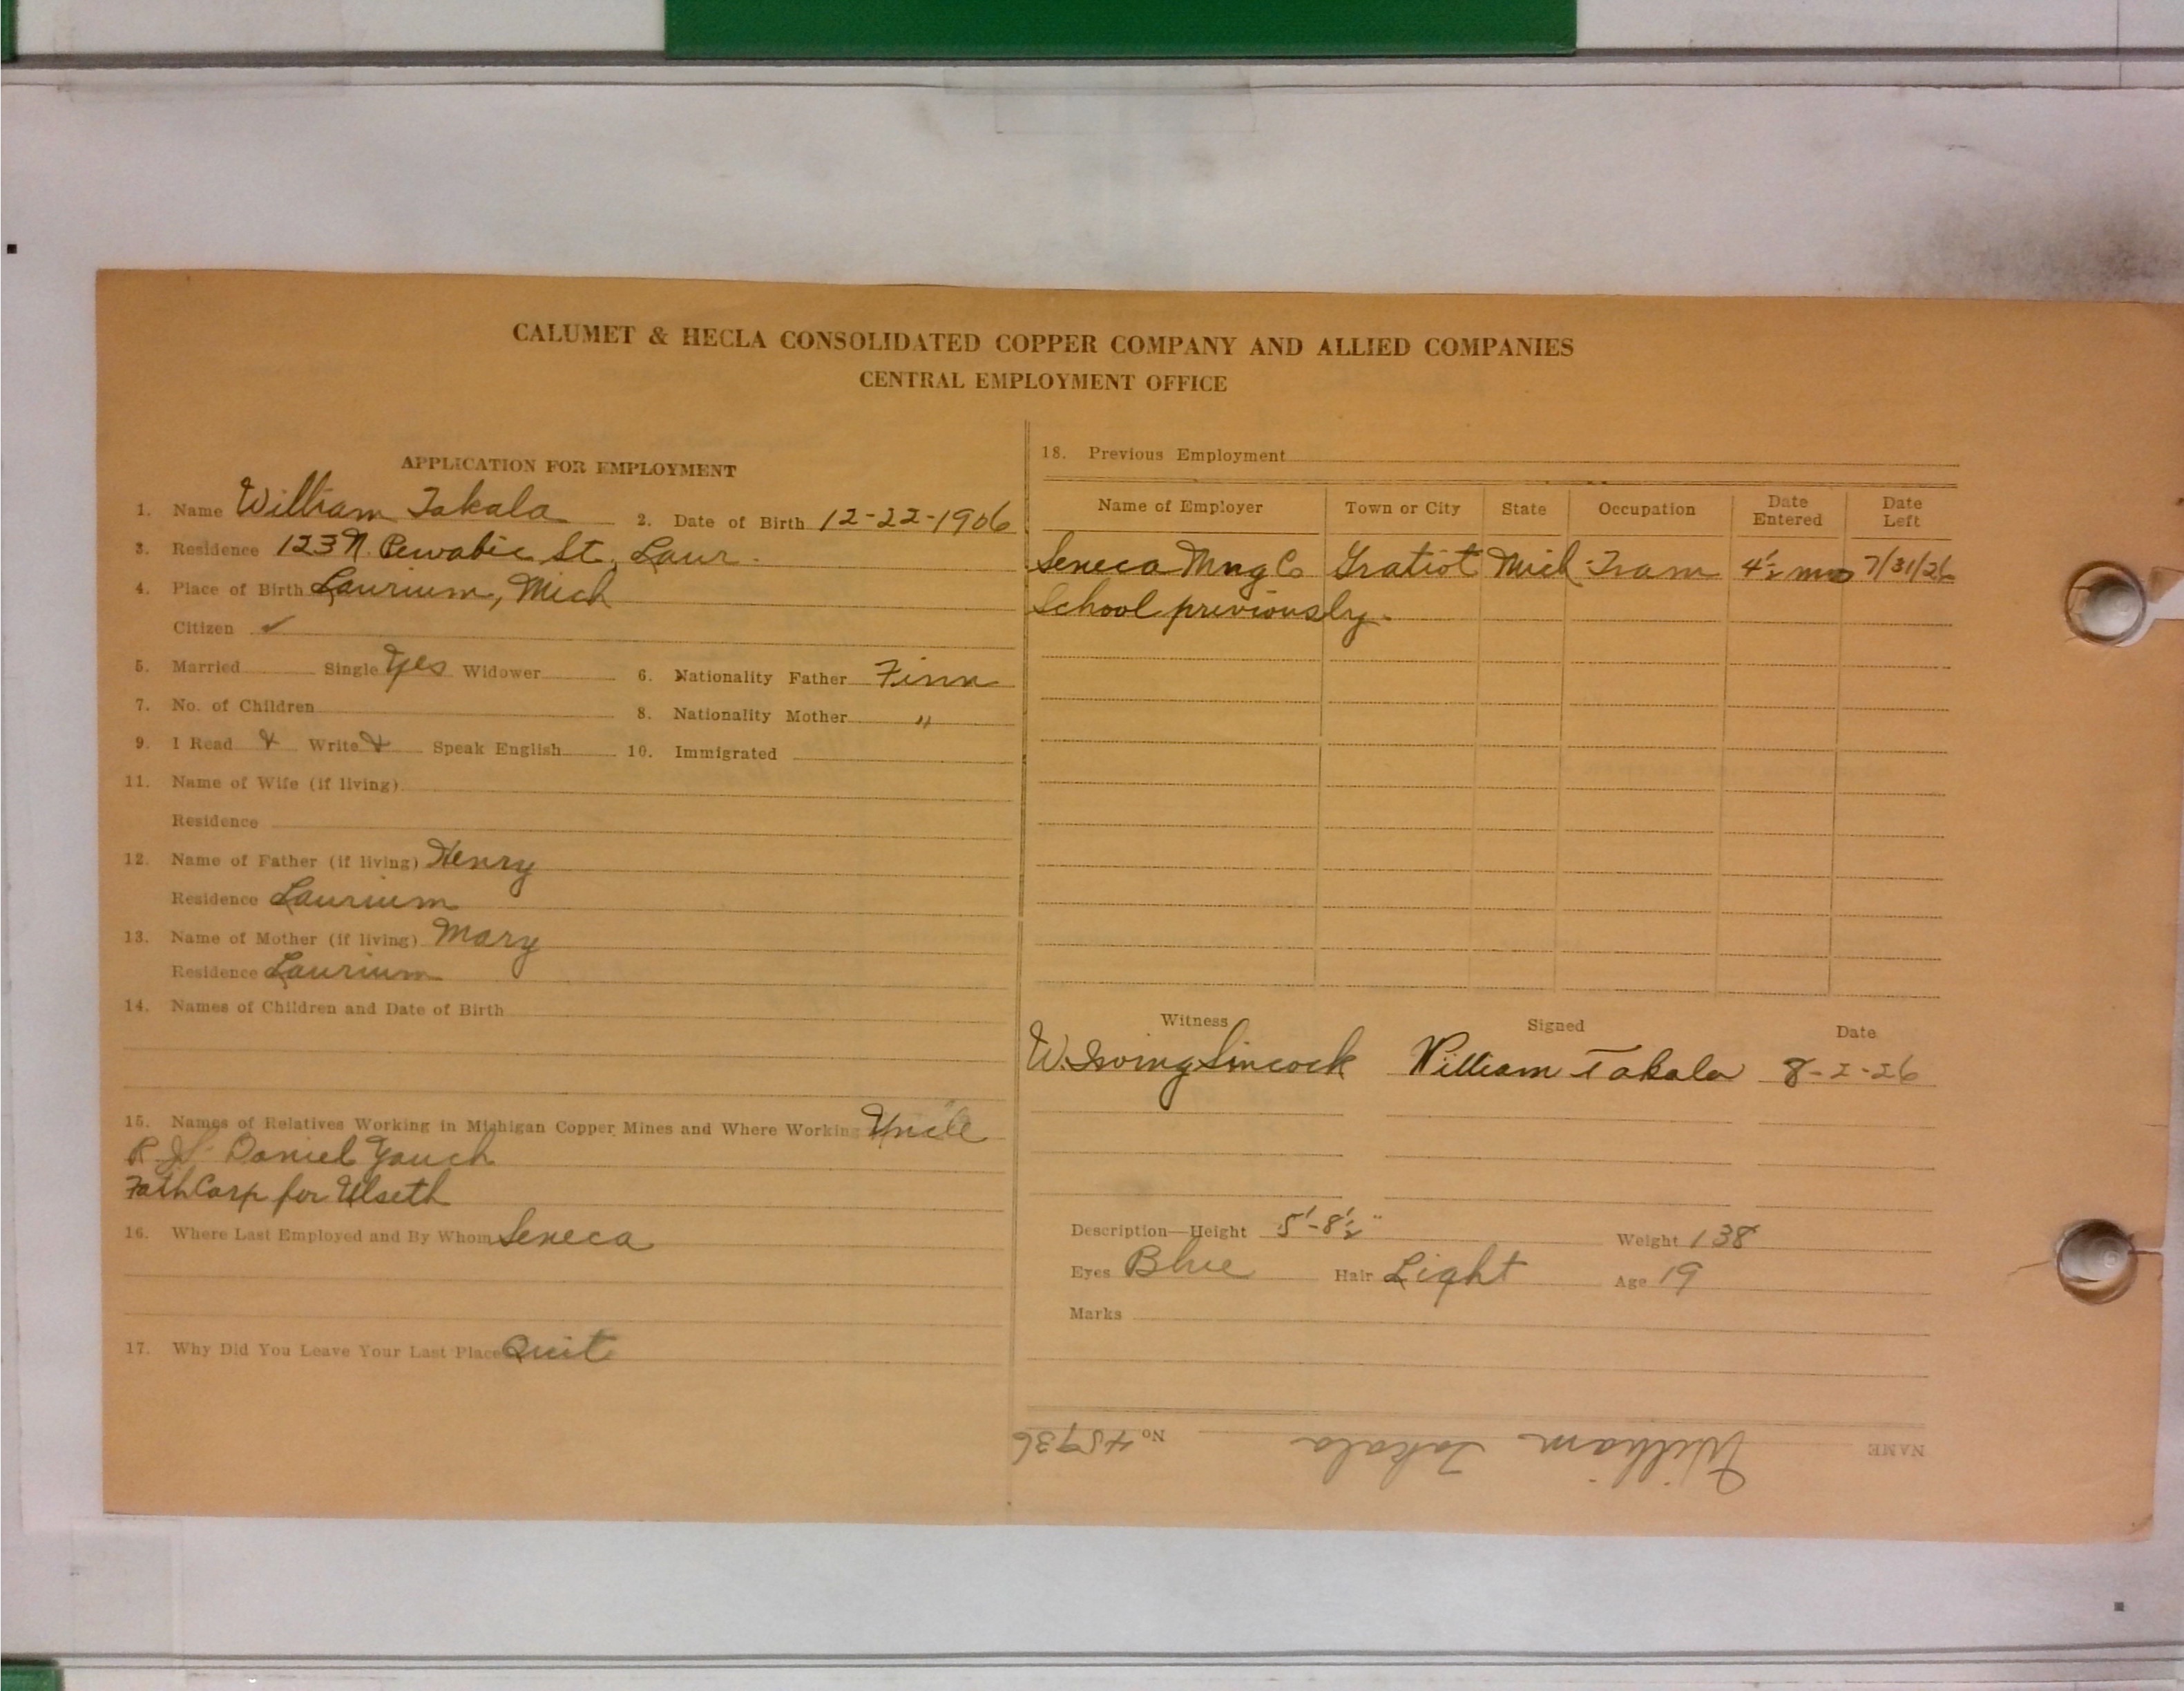 CALUMET & HECLA CONSOLIDATED COPPER COMPANY AND ALLIED COMPANIES
CENTRAL EMPLOYMENT OFFICE
APPLICATION FOR EMPLOYMENT
1. Name William Takala 2. Date of Birth 12-22-1906
3. Residence 123 N. Pewabic St, Laur.
4. Place of Birth Laurium, Mich
Citizen ✓
5. Married Single Yes Widower 6. Nationality Father Finn
7. No. of Children 8. Nationality Mother "
9. I Read & Write & Speak English 10. Immigrated
11. Name of Wife (if living)
Residence
12. Name of Father (if living) Henry
Residence Laurium
13. Name of Mother (if living) Mary
Residence Laurium
14. Names of Children and Date of Birth
15. Names of Relatives Working in Michigan Copper Mines and Where Working Uncle
Daniel
Fath Carp for Ulseth
16. Where Last Employed and By Whom Seneca
17. Why Did You Leave Your Last Place Quit
18. Previous Employment
Name of Employer Town or City State Occupation Date Entered Date Left
Seneca Mng Co Gratiot Mich Tram 4½ mos 7/31/26
School previously.
Witness Signed Date
W. Irving Sincock William Takala 8-2-26
Description—Height 5'-8½" Weight 138
Eyes Blue Hair Light Age 19
Marks
NAME William Takala No 45936